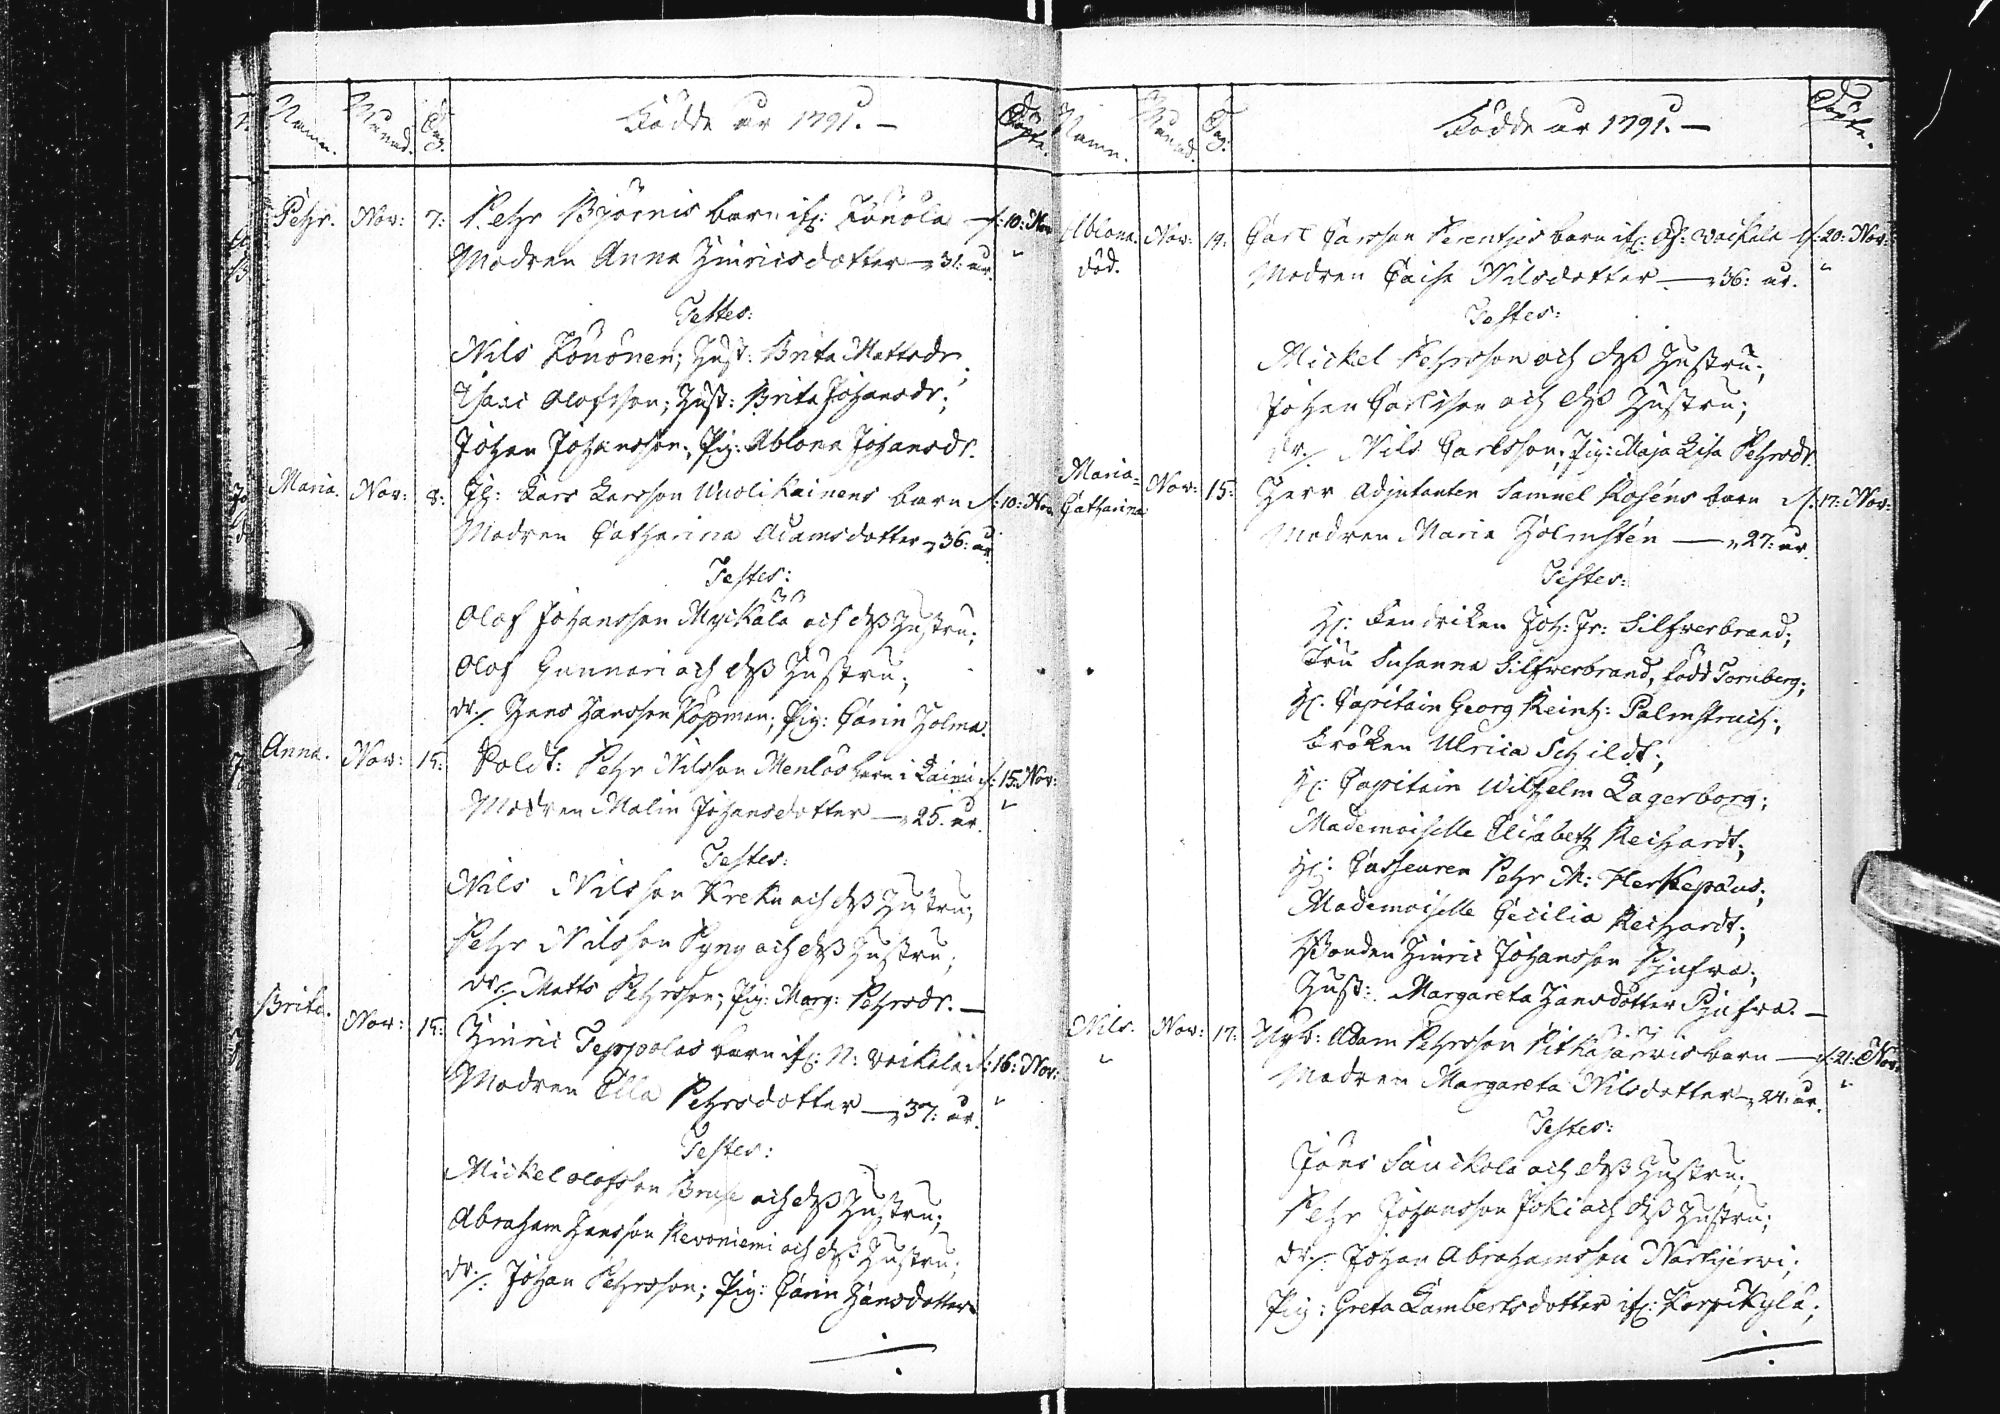 Namn. Månad. Dag: Födde år 1791. — Döpte.
Pehr. Nov: 7: Pehr Björnis barn if: Könölä d: 10: Nov
Modren Anna Hinricsdotter — 31: år. "
Testes:
Nils Könönen; Hust: Brita Mattsdr;
Isaac Olofsson; Hust: Brita Johansdr;
Johan Johansson; Pig: Ablona Johansdr.
Maria. Nov: 8: Lars Larsson Wuolikainens barn d: 10: Nov
Modren Catharina Adamsdotter 36: år
Testes:
Olof Johansson Myckälä och dess Hustru;
Olof Gunnari och dess Hustru;
dr./. Hans Hansson Köpman; Pig: Carin Holma.
Anna. Nov: 15: Soldt: Pehr Nilsson Menlös barn i Laimi d: 15: Nov:
Modren Malin Johansdotter — 25. år. "
Testes:
Nils Nilsson Kreku och dess Hustru;
Pehr Nilsson Pyny och dess Hustru;
dr./. Matts Pehrsson; Pig: Marg: Pehrsdr. —
Brita. Nov: 15: Hinric Teppolas barn if: N: Voikala d: 16: Nov:
Modren Ella Pehrsdotter — 37: år. "
Testes:
Mickel Olofsson Bruse och dess Hustru;
Abraham Hansson Revoniemi och dess Hustru;
dr./. Johan Pehrsson; Pig: Carin Hansdotter
Namn. Månad. Dag: Födde år 1791. — Döpte.
Albiona. Nov: 19: Carl Carsson Perentzis barn if: Öf: Voikala d: 20: Nov:
död. Modren Caisa Nilsdotter — 36: år. "
Testes:
Mickel Pehrsson och dess Hustru;
Johan Carlsson och dess Hustru;
dr./. Nils Carlsson; Pig: Maja Lisa Pehrsdr.
Maria Catharina Nov: 15: Herr Adjutanten Samuel Roséns barn d: 17: Nov:
Modren Maria Holmstén — 27: år.
Testes:
H: Fendriken Joh: Fr: Silfverbrand;
Fru Susanna Silfverbrand, född Tornberg;
H: Capitain Georg Reinh: Palmstruch;
Fröken Ulrica Schildt;
H: Capitain Wilhelm Lagerborg;
Mademoiselle Elisabeth Reichardt;
H: Casseuren Pehr M: Herkepæus;
Mademoiselle Cecilia Reichardt;
Bonden Hinric Johansson
Hust: Margareta Hansdotter
Nils. Nov: 17: Nyb: Adam Pehrsson Pitkäjärvis barn — d: 21: Nov:
" Modren Margareta Nilsdotter 24: år. "
Testes:
Jöns Sauckola och dess Hustru;
Pehr Johansson Joki och dess Hustru;
dr./. Johan Abrahamsson Narkijerwi;
Pig: Greta Lambertsdotter if: Korpikylä;